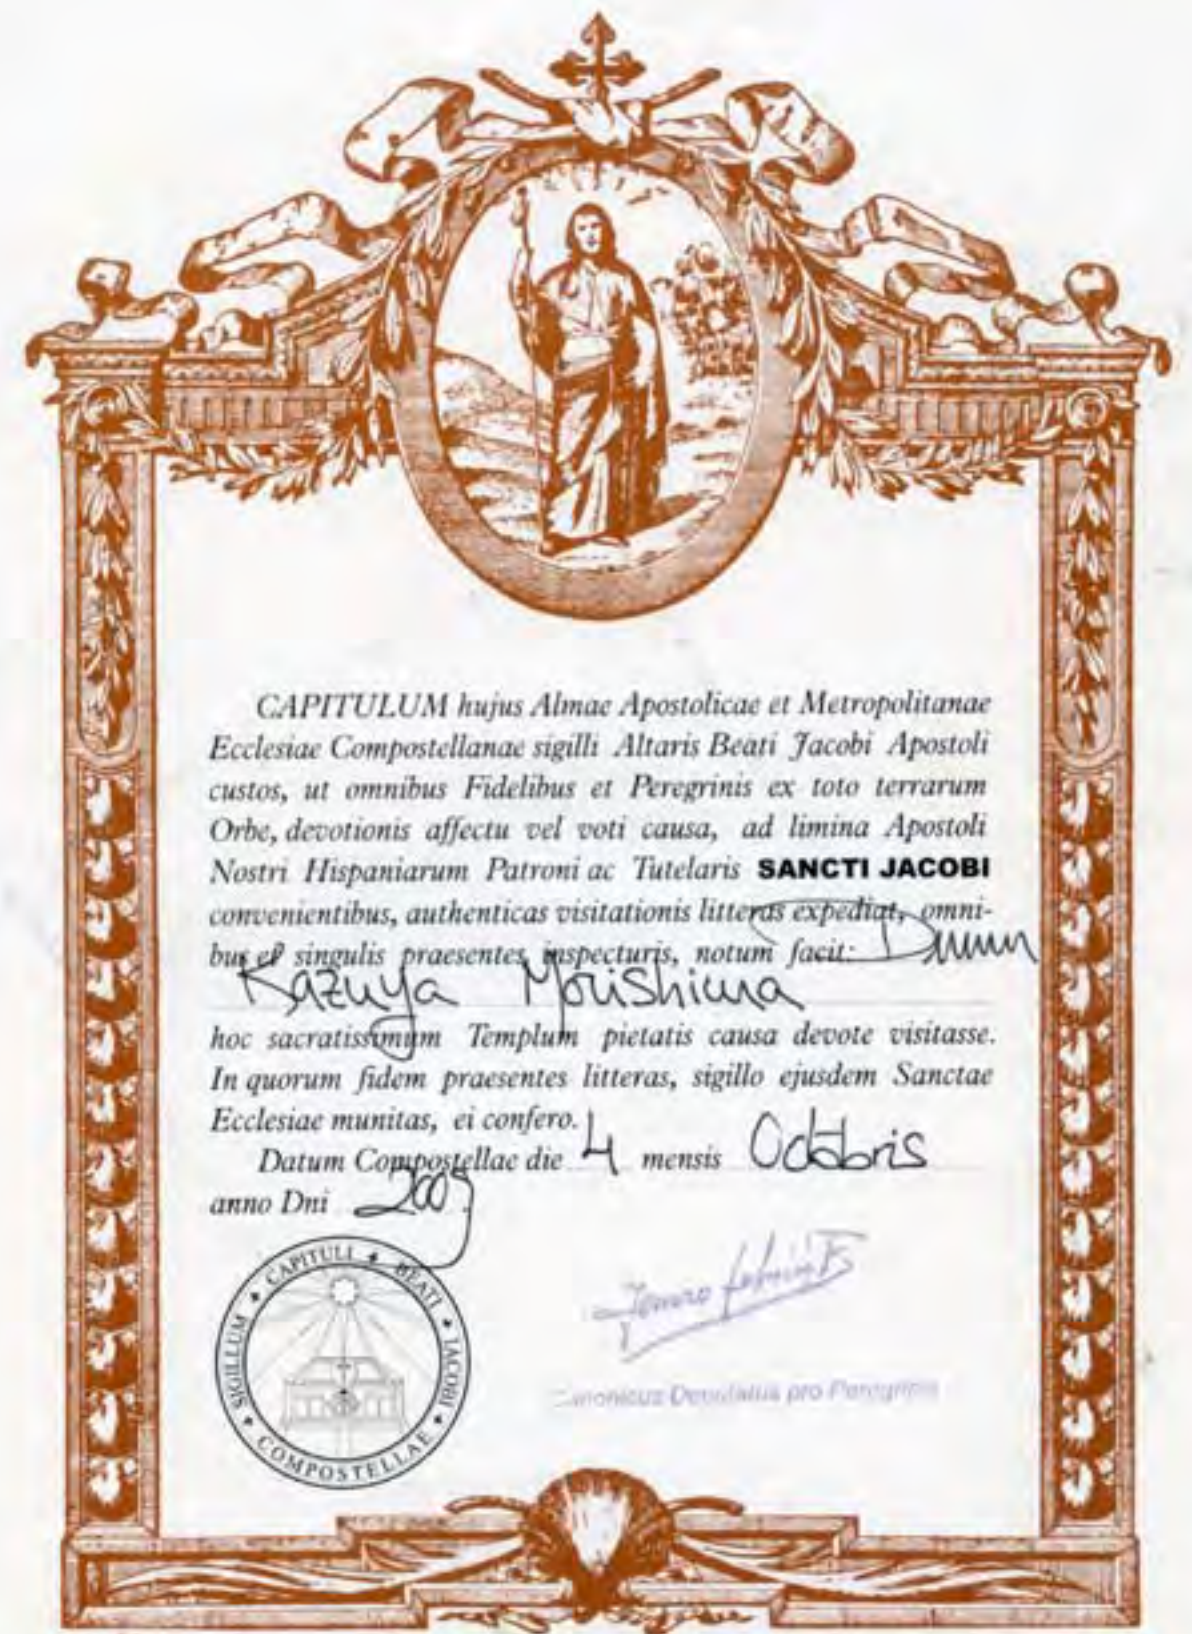 CAPITULUM hujus Almae Apostolicae et Metropolitanae
Ecclesiae Compostellanae sigilli Altaris Beati Jacobi Apostoli
custos, ut omnibus Fidelibus et Peregrinis ex toto terrarum
Orbe, devotionis affectu vel voti causa, ad limina Apostoli
Nostri Hispaniarum Patroni ac Tutelaris SANCTI JACOBI
convenientibus, authenticas visitationis litteras expediat, omni-
bus et singulis praesentes inspecturis, notum facit: Dnum
Kazuya Morishima
hoc sacratissimum Templum pietatis causa devote visitasse.
In quorum fidem praesentes litteras, sigillo ejusdem Sanctae
Ecclesiae munitas, ei confero.
Datum Compostellae die 4 mensis Octobris
anno Dni 2009
SIGILLUM CAPITULI BEATI IACOBI COMPOSTELLAE
Canonicus Deputatus pro Peregrinis